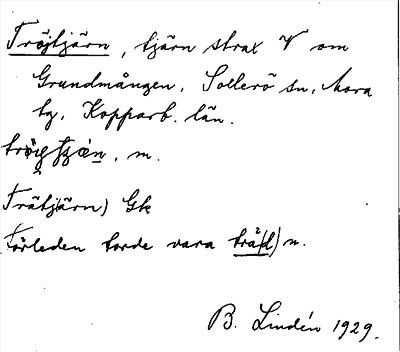 Tröjtjärn, tjärn strax V om
Grundmången, Sollerö sn, Mora
tg, Kopparb. län.
m.
Trätjärn) Gk
Förleden torde vara träd) n.
B. Lindén 1929.